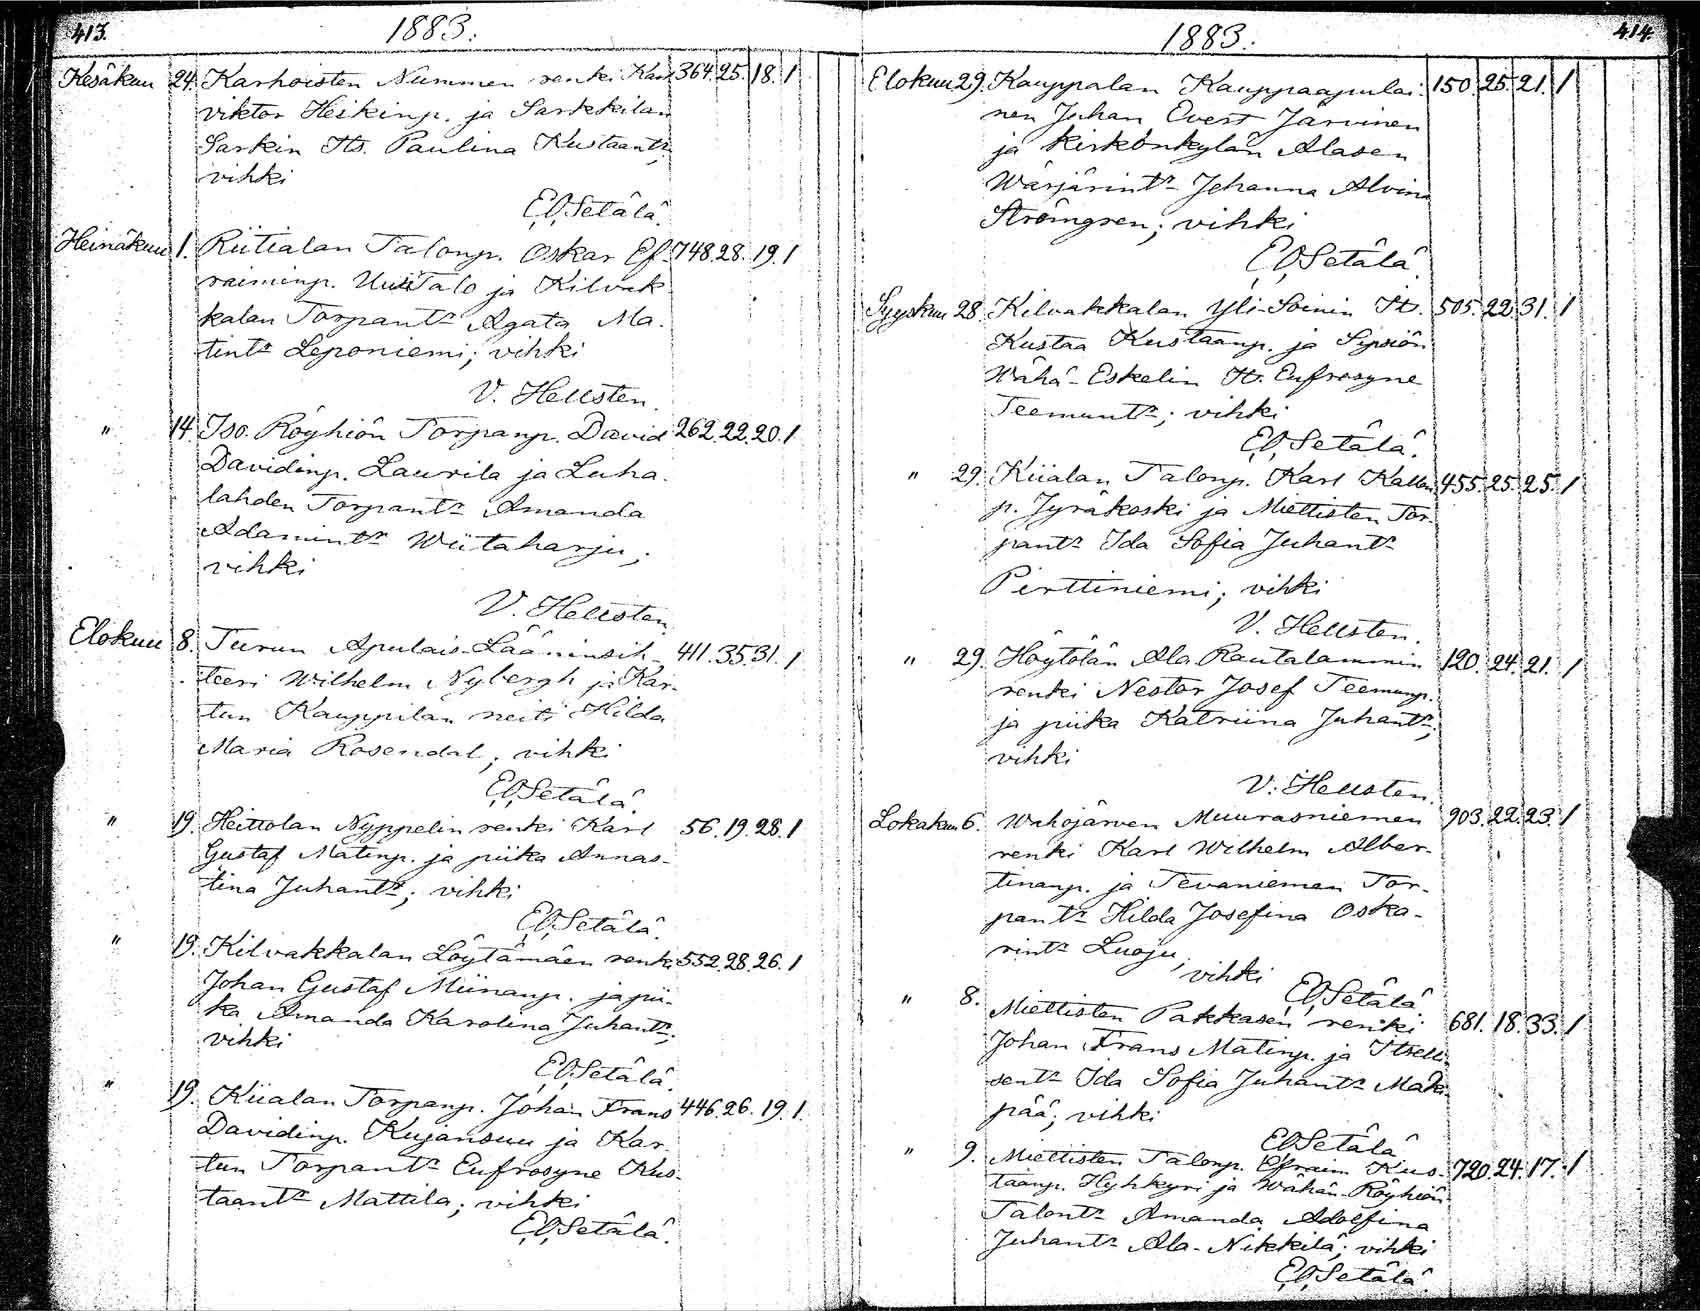 413.
1883.
Kesäkuu 24. Karhoisten Nummen renki Karl 364. 25. 18. 1
viktor Heikinp. ja Sarkkilan
Sarkin Tts. Paulina Kustaantr.
vihki
E.O.Setälä.
Heinäkuu 1. Riitialan Talonp. Oskar Ef- 748. 28. 19. 1
raiminp. UusiTalo ja Kilvak-
kalan Torpantr Agata Ma-
tintr Leponiemi; vihki
V. Hellsten.
" 14. Iso-Röyhiön Torpanp. David 262. 22. 20. 1
Davidinp. Laurila ja Luha-
lahden Torpantr Amanda
Adamintr Wiitaharju;
vihki
V. Hellsten.
Elokuu 8. Turun Apulais-Lääninsih- 411. 35. 31. 1
teeri Wilhelm Nybergh ja Kar-
tun Kauppilan neiti Hilda
Maria Rosendal; vihki
E.O.Setälä.
" 19. Heittolan Nyppelin renki Karl 56. 19. 28. 1
Gustaf Matinp. ja piika Annas-
tina Juhantr; vihki
E.O.Setälä.
" 19. Kilvakkalan Löytämäen renki 552. 28. 26. 1
Johan Gustaf Miinanp. ja pii-
ka Amanda Karolina Juhantr;
vihki
E.O.Setälä.
" 19. Kiialan Torpanp. Johan Frans 446. 26. 19. 1.
Davidinp. Kujansuu ja Kar-
tun Torpantr Eufrosyne Kus-
taantr Mattila; vihki
E.O.Setälä.
1883.
414.
Elokuu 29. Kauppalan Kauppaapulai- 150. 25. 21. 1
nen Juhan Evert Jarvinen
ja Kirkönkylän Alasen
Wärjärintr Johanna Alvina
Strömgren; vihki
E.O.Setälä.
Syyskuu 28. Kilvakkalan Yli-Soinin Tts. 505. 22. 31. 1
Kustaa Kustaanp. ja Sipsiön
Wähä-Eskelin Tts. Eufrosyne
Teemuntr; vihki
E.O.Setälä.
" 29. Kiialan Talonp. Karl Kallen 455. 25. 25. 1
p. Jyräkoski ja Miettisten Tor-
pantr Ida Sofia Juhantr
Perttiniemi; vihki
V. Hellsten.
" 29. Höytölän Ala-Rautalammin 120. 24. 21. 1
renki Nestor Josef Teemunp.
ja piika Katriina Juhantr;
vihki
V. Hellsten.
Lokakuu 6. Wahojärven Muurasniemen 903. 22. 23. 1
renki Karl Wilhelm Alber-
tinanp. ja Tevaniemen Tor-
pantr Hilda Josefina Oska-
rintr Luoju; vihki
E.O.Setälä
" 8. Miettisten Pakkasen renki 681. 18. 33. 1
Johan Frans Matinp. ja Itselli-
sentr Ida Sofia Juhantr Mäki-
pää; vihki
E.O.Setälä
" 9. Miettisten Talonp. Efraim Kus- 720. 24. 17. 1
taanp. Hyhkyri ja Wähän-Röyhiön
Talontr Amanda Adolfina
Juhantr Ala-Nikkilä; vihki
E.O.Setälä